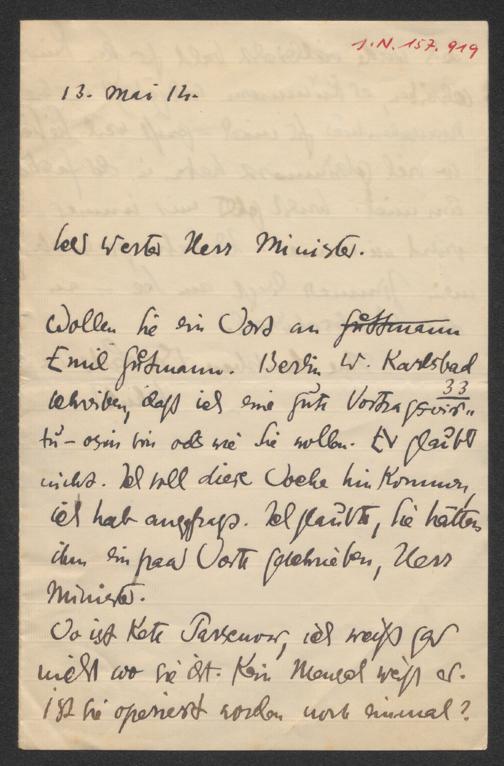 I.N. 157.919
13. Mai 14.
sehr werter Herr Minister.
Wollen Sie ein Wort an Guttmann
Emil Gutmann. Berlin W. Karlsbad
33
schreiben, daß ich eine gute Vortragsvir„
tu-osin bin oder wie Sie wollen. Er glaubt
nicht. Ich soll diese Woche hinkommen,
ich hab angefragt. Ich glaubte, Sie hätten
ihm ein paar Worte geschrieben, Herr
Minister.
Wo ist Kete Parsenow, ich weiß gar
nicht wo sie ist. Kein Mensch weiß es.
Ist sie operiert worden noch einmal?